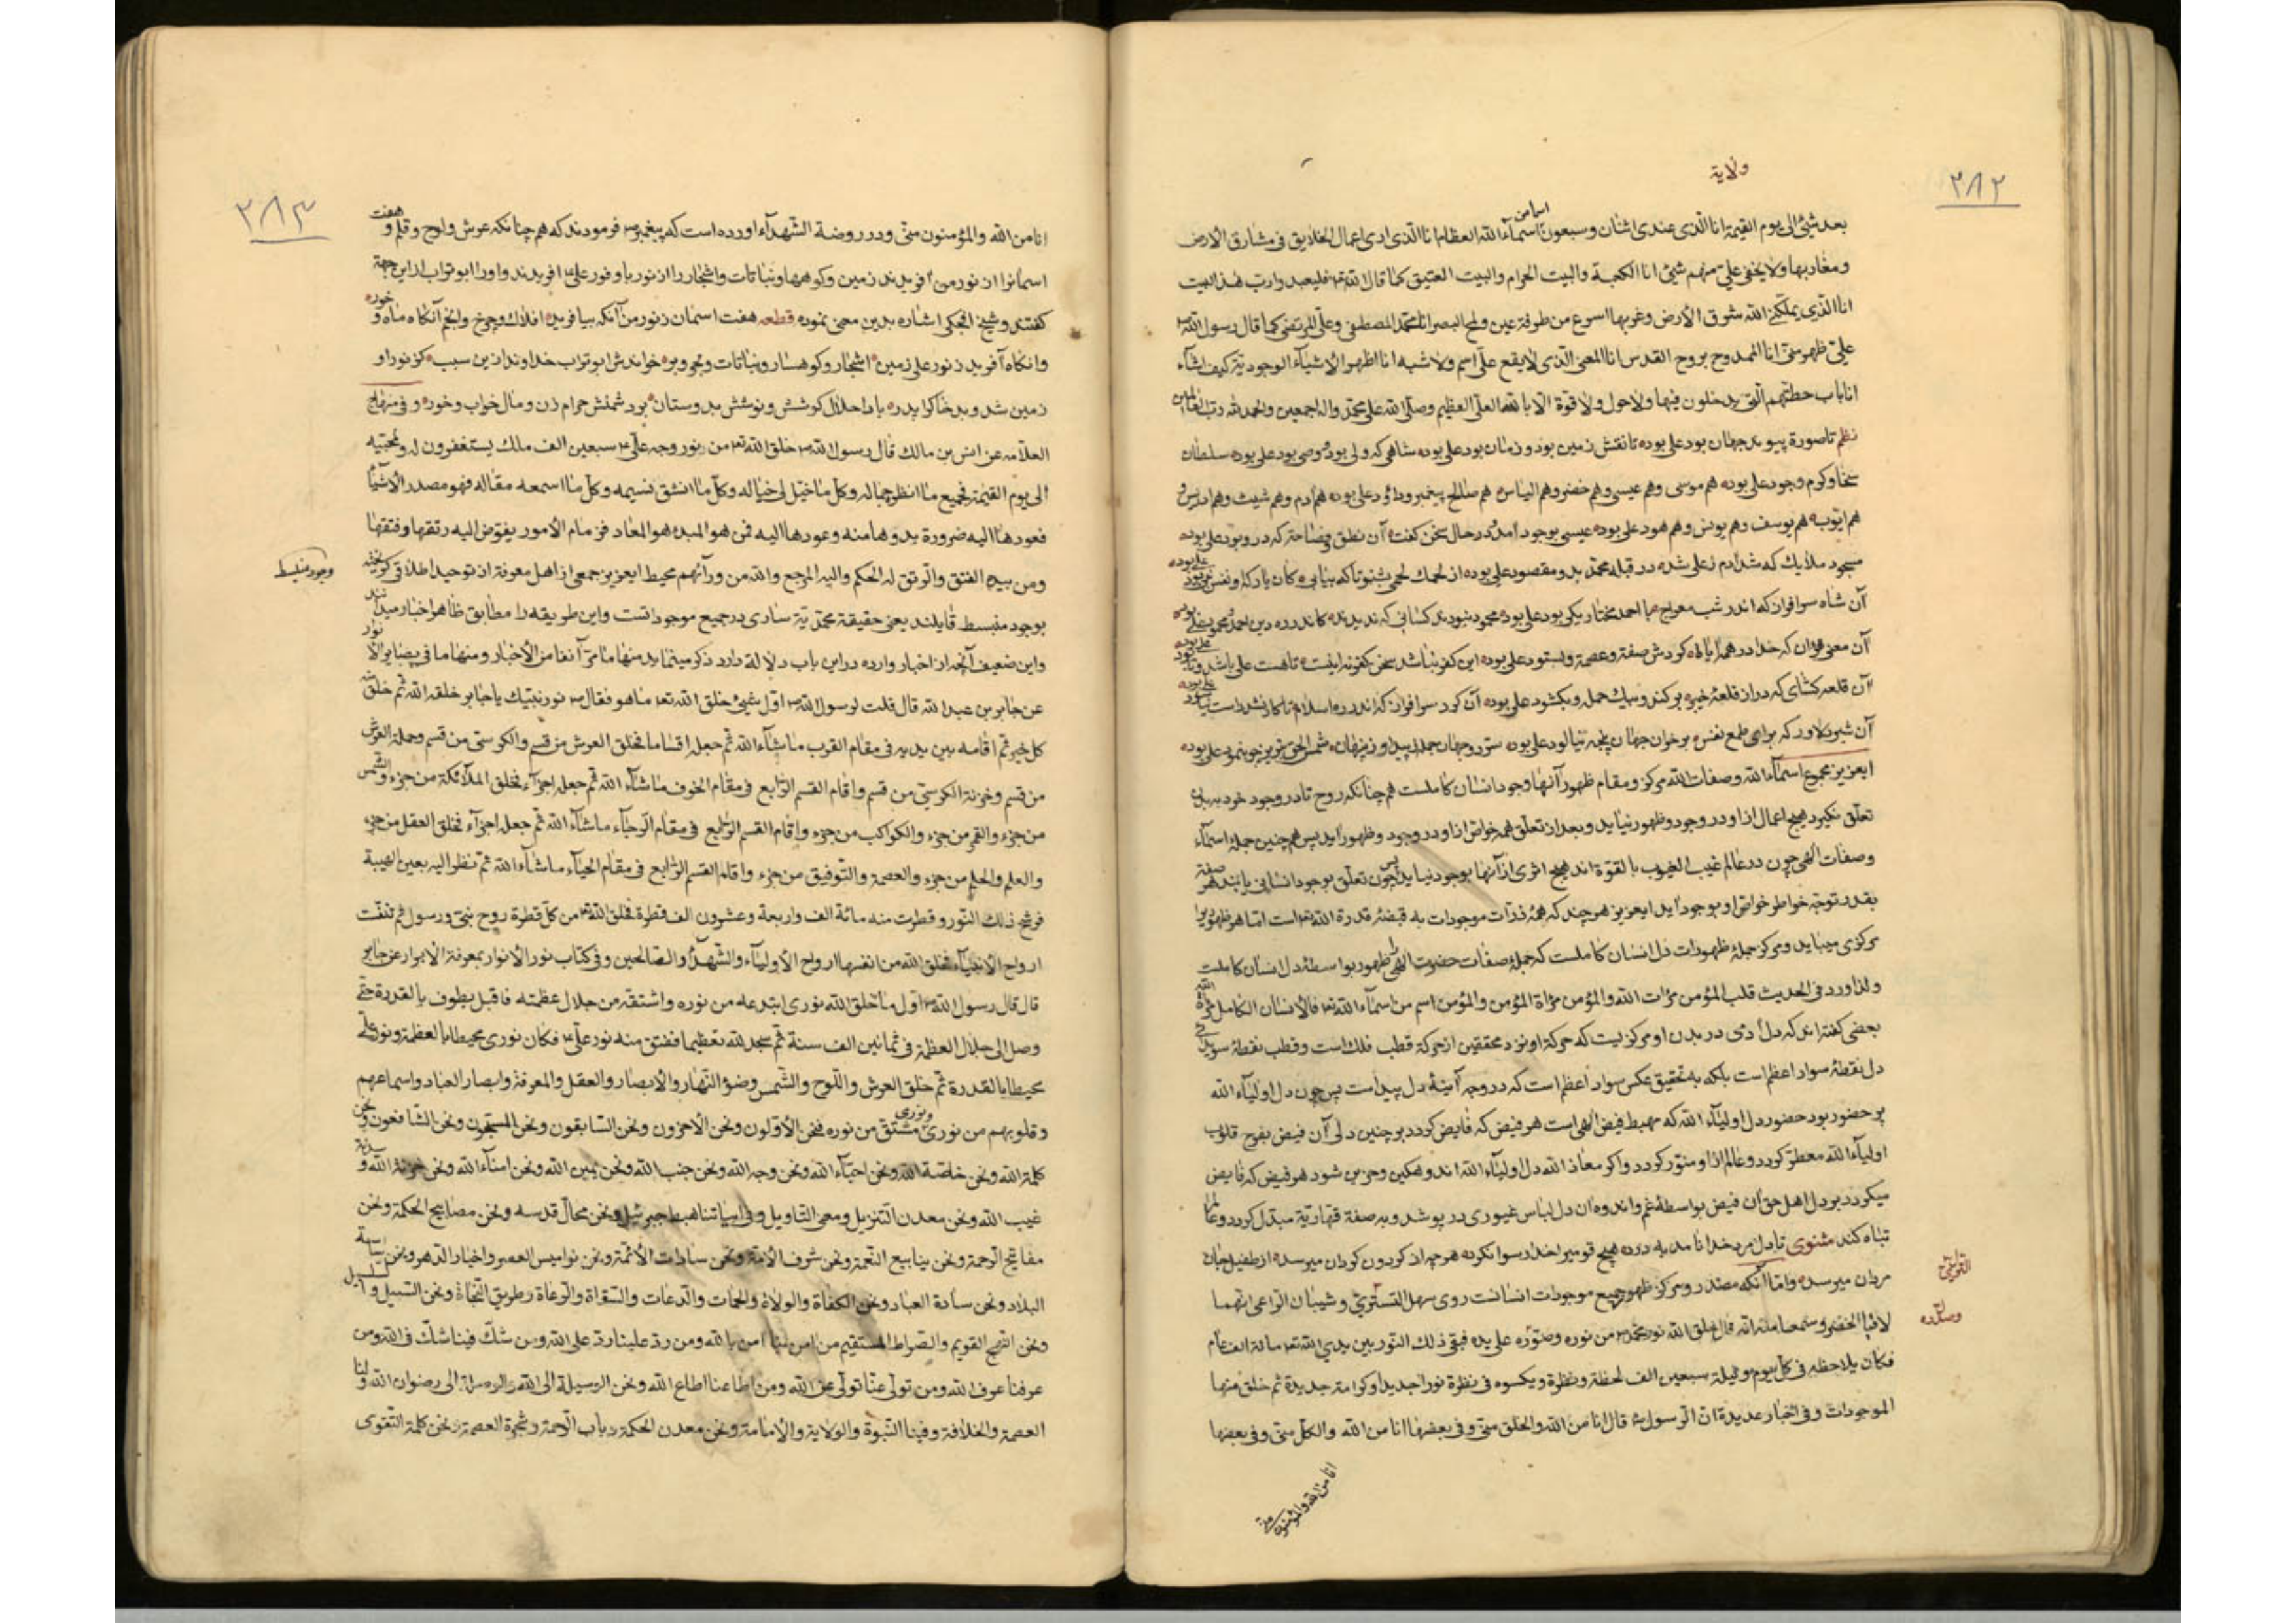 ۲۸۲
ولایة
بعد شیئ الی یوم القیمة انا الذی عندی اثنان وسبعون اسما من اسمآء الله العظام انا الذی اری اعمال الخلایق فی مشارق الارض
ومغاربها ولا یخفی علیّ منهم شیئ انا الکعبة والبیت الحرام والبیت العتیق کما قال الله تع فلیعبدوا ربّ هذا البیت
انا الذی یملّکنی الله شرق الأرض وغربها اسرع من طرفة عین ولمح البصر انا محمّد المصطفی وعلیّ المرتضی کما قال رسول الله ص
علیّ ظهر منّی انا الممدوح بروح القدس انا المعنی الّذی لا یقع علیّ اسم ولا شبه انا اظهر الأشیآء الوجودیّة کیف اشآء
انا باب حطّتهم الّتی یدخلون فیها ولا حول ولا قوة الّا بالله العلیّ العظیم وصلّی الله علی محمّد واله اجمعین والحمد لله ربّ العالمین
نظم تا صورة پیوند جهان بود علی بوده تا نقش زمین بود و زمان بود علی بوده شاهی که ولی بود و وصی بود علی بوده سلطان
سخا و کرم وجود علی بوده هم موسی وهم عیسی وهم خضر وهم الیاس هم صالح پیغمبر و داؤد علی بوده هم آدم وهم شیث وهم ادریس و
هم ایّوب هم یوسف وهم یونس وهم هود علی بوده عیسی بوجود آمد و در حال سخن کفت آن نطق وفصاحة که در و بود علی بوده
مسجود ملایك که شد آدم ز علی شد در قبله محمّد بد و مقصود علی بوده از لحمك لحمی بشنو تا که بیابی کان یار که او نفس نبی بود علی بوده
آن شاه سرافراز که اندر شب معراج با احمد مختار یکی بود علی بوده محمود نبودند کسانی که ندیدند کاندر ره دین احمد محمود علی بوده
آن قلعه کشای که در از قلعهٔ خیبر برکند بیك حمله وبکشود علی بوده آن کرد سرافراز که اندر ره اسلام تا کار نشد راست نیاسود علی بوده
آن شیر دلاور که برای طمع نفس بر خوان جهان پنجه نیالود علی بوده سرّ دو جهان جمله ز پیدا و ز پنهان شمس الحق تبریز چو بنمود علی بوده
ایعزیز مجموع اسمآء الله وصفات الله مرکز ومقام ظهور آنها وجود انسان کاملست هم چنانکه روح تا در وجود خود به بدن
تعلّق نکیرد هیچ اعمال ازاو در وجود وظهور نیاید وبعد از تعلّق همه خواصّ ازاو در وجود وظهور آید پس هم چنین جملهٔ اسمآء
وصفات الهی چون در عالم غیب الغیوب بالقوّة اند هیچ اثری ازآنها بوجود نیاید پس چون تعلّق بوجود انسانی یابند هر صفة
بقدر توجّه خواطر خواصّ او بوجود آید ایعزیز هر چند که همهٔ ذرّات موجودات به قبضهٔ قدرة الله تع است امّا هر ظهور را
مرکزی میباید ومرکز جملهٔ ظهورات دل انسان کاملست که جملهٔ صفات حضرت الهی را ظهور بواسطهٔ دل انسان کاملست
ولذا ورد فی الحدیث قلب المؤمن مرآت الله والمؤمن مرآة المؤمن والمؤمن اسم من اسمآء الله تع فالأنسان الکامل مرآة الله
بعضی کفته اند که دل آدمی در بدن او مرکزیست که حرکة او نزد محققین از حرکة قطب فلك است وقطب نقطهٔ سویدای
دل نقطهٔ سواد اعظم است بلکه به تحقیق عکس سواد اعظم است که در وجه آینهٔ دل پیداست پس چون دل اولیآء الله
پر حضور بود حضور دل اولیآء الله که مهبط فیض الهی است هر فیض که فایض کردد بر چنین دلی آن فیض بفرح قلوب
اولیآء الله معطّر کردد وعالم ازاو منوّر کردد واکر معاذ الله دل اولیآء الله اندوهکین وحزین شود هر فیض که فایض
میکردد بر دل اهل حق آن فیض بواسطهٔ غم واندوه آن دل لباس غیوری در پوشد وبه صفة قهاریّة مبدّل کردد وعالم را
تباه کند مثنوی تا دل مرد خدا نامد به درد هیچ قومیرا خدا رسوا نکرد هر چه از کردون کردان میرسد از طفیل جان
مردان میرسد وامّا آنکه مصدر ومرکز ظهور جمیع موجودات انسانست روی سهل التستری وشیبان الراعی انهما
لاقیا الخضر وسمعا منه انّه قال خلق الله نور محمّد ص من نوره وصوّره علی یده فبقی ذلك النّور بین یدی الله تع مائة الف عام
فکان یلاحظه فی کلّ یوم ولیلة سبعین الف لحظة ونظرة ویکسوه فی نظرة نورا جدیدا وکرامة جدیدة ثم خلق منها
الموجودات وفی اخبار عدیدة انّ الرسول ص قال انا من الله والخلق منّی وفی بعضها انا من الله والکلّ منّی وفی بعضها
انا من الله والمؤمنون منی
۲۸۳
انا من الله والمؤمنون منّی ودر روضة الشهدآء اورده است که پیغمبر ص فرمودند که هم چنانکه عرش ولوح وقلم و هفت
اسمانرا از نور من آفریدند زمین وکوهها ونباتات واشجار را از نور علی ع افریدند واورا ابوتراب ازاین جهة
کفتند وشیخ اشاره بدین معنی نموده قطعه هفت اسمان ز نور من آنکه بیافرید افلاك وچرخ وانجم آنکاه ماه و خور
وانکاه آفرید ز نور علی زمین اشجار وکوهسار ونباتات وبحر وبر خواندش ابوتراب خداوند ازین سبب کز نور او
زمین شد وبد خاکرا پدر بادا حلال کوشش ونوشش بدوستان بر دشمنش حرام زن ومال خواب وخور وفی منهاج
العلّامه عن انس بن مالك قال رسول الله ص خلق الله تع من نور وجه علیّ ع سبعین الف ملك یستغفرون له ولمحبّیه
الی یوم القیمة فجمیع ما انظر جماله وکلّ ما خیّل لی خیاله وکلّ ما انشق نسیمه وکلّ ما اسمعه مقاله فهو مصدر الأشیآء
فعودها الیه ضرورة بدوها منه وعودها الیه فمن هو المبدء هو المعاد فزمام الأمور یفوّض الیه رتقها وفتقها
ومن بیده الفتق والرّتق له الحکم والیه المرجع والله من ورآئهم محیط ایعزیز جمعی از اهل معرفة از توحید اطلاقی کریخته
وجود منبسط
بوجود منبسط قایلند یعنی حقیقة محمّدیّة ساری در جمیع موجوداتست واین طریقه را مطابق ظاهر اخبار میدانند
واین ضعیف آنچه از اخبار وارده دراین باب دلالة دارد ذکر مینماید منها ما مرّ آنفا من الأخبار ومنها ما فی بصایر الانوار
عن جابر بن عبد الله قال قلت لرسول الله ص اوّل شیئ خلق الله تع ما هو فقال ص نور نبیّك یا جابر خلقه الله ثم خلق منه
کل خیر ثم اقامه بین یدیه فی مقام القرب ما شآء الله ثم جعله اقساما فخلق العرش من قسم والکرسیّ من قسم وحملة العرش
من قسم وخزنة الکرسیّ من قسم واقام القسم الرّابع فی مقام الخوف ما شآء الله ثم جعله اجزآء فخلق الملآئکة من جزء والشّمس
من جزء والقمر من جزء والکواکب من جزء واقام القسم الرّابع فی مقام الرّجآء ما شآء الله ثم جعله اجزآء فخلق العقل من جزء
والعلم والحلم من جزء والعصمة والتّوفیق من جزء واقام القسم الرّابع فی مقام الحیآء ما شآء الله ثم نظر الیه بعین الهیبة
فرشح ذلك النّور وقطرت منه مائة الف واربعة وعشرون الف قطرة فخلق الله تع من کلّ قطرة روح نبیّ ورسول ثم تنفّست
ارواح الأنبیآء فخلق الله من انفسها ارواح الأولیآء والشّهدآء والصّالحین وفی کتاب نور الأنوار بمعرفة الأبرار عن جابر
قال قال رسول الله ص اوّل ما خلق الله نوری ابتدعه من نوره واشتقّه من جلال عظمته فاقبل یطوف بالقدرة حتّی
وصل الی جلال العظمة فی ثمانین الف سنة ثم سجد لله تعظیما ففتق منه نور علیّ ع فکان نوری محیطا بالعظمة ونور علیّ
محیطا بالقدرة ثم خلق العرش واللّوح والشّمس وضوء النّهار والأبصار والعقل والمعرفة وابصار العباد واسماعهم
وقلوبهم من نوری ونوری مشتقّ من نوره فنحن الأوّلون ونحن الأخرون ونحن السّابقون ونحن المسبّحون ونحن الشّافعون ونحن
کلمة الله ونحن خاصّة الله ونحن احبّآء الله ونحن وجه الله ونحن جنب الله ونحن یمین الله ونحن امنآء الله ونحن خزنة الله وسدنة
غیب الله ونحن معدن التنزیل ومعنی التّاویل وفی ابیاتنا هبط جبرئیل ونحن محالّ قدسه ونحن مصابیح الحکمة ونحن
مفاتیح الرّحمة ونحن ینابیع النّعمة ونحن شرف الأمّة ونحن سادات الأئمّة ونحن نوامیس العصر واخبار الدّهر ونحن ساسة
البلاد ونحن سادة العباد ونحن الکفاة والولاة والحماة والدّعات والسّقاة والرّعاة وطریق النّجاة ونحن السّبیل والسّلسبیل
ونحن النّهج القویم والصّراط المستقیم من امن بنا امن بالله ومن ردّ علینا ردّ علی الله ومن شكّ فینا شكّ فی الله ومن
عرفنا عرف الله ومن تولّی عنّا تولّی عن الله ومن اطاعنا اطاع الله ونحن الوسیلة الی الله والوصلة الی رضوان الله ولنا
العصمة والخلافة وفینا النّبوّة والولایة والأمامة ونحن معدن الحکمة وباب الرّحمة وشجرة العصمة ونحن کلمة التّقوی